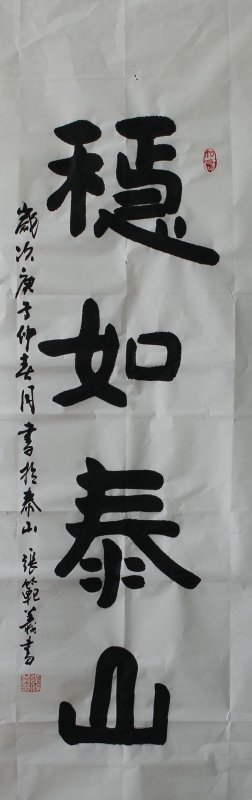 穩如泰山
歲次庚子仲春月書於泰山張範義書